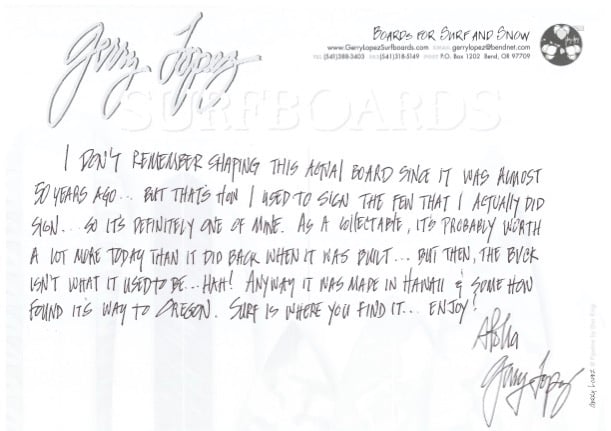 Gerry Lopez
SURFBOARDS
BOARDS FOR SURF AND SNOW
www.GerryLopezSurfboards.com EMAIL gerrylopez@bendnet.com
TEL (541)388-3403 FAX (541)318-5149 POST P.O. Box 1202 Bend, OR 97709
I DON'T REMEMBER SHAPING THIS ACTUAL BOARD SINCE IT WAS ALMOST
50 YEARS AGO... BUT THAT'S HOW I USED TO SIGN THE FEW THAT I ACTUALLY DID
SIGN... SO IT'S DEFINITELY ONE OF MINE. AS A COLLECTABLE, IT'S PROBABLY WORTH
A LOT MORE TODAY THAN IT DID BACK WHEN IT WAS BUILT... BUT THEN, THE BUCK
ISN'T WHAT IT USED TO BE... HAH! ANYWAY IT WAS MADE IN HAWAII & SOME HOW
FOUND IT'S WAY TO OREGON. SURF IS WHERE YOU FIND IT... ENJOY!
Aloha
Gerry Lopez